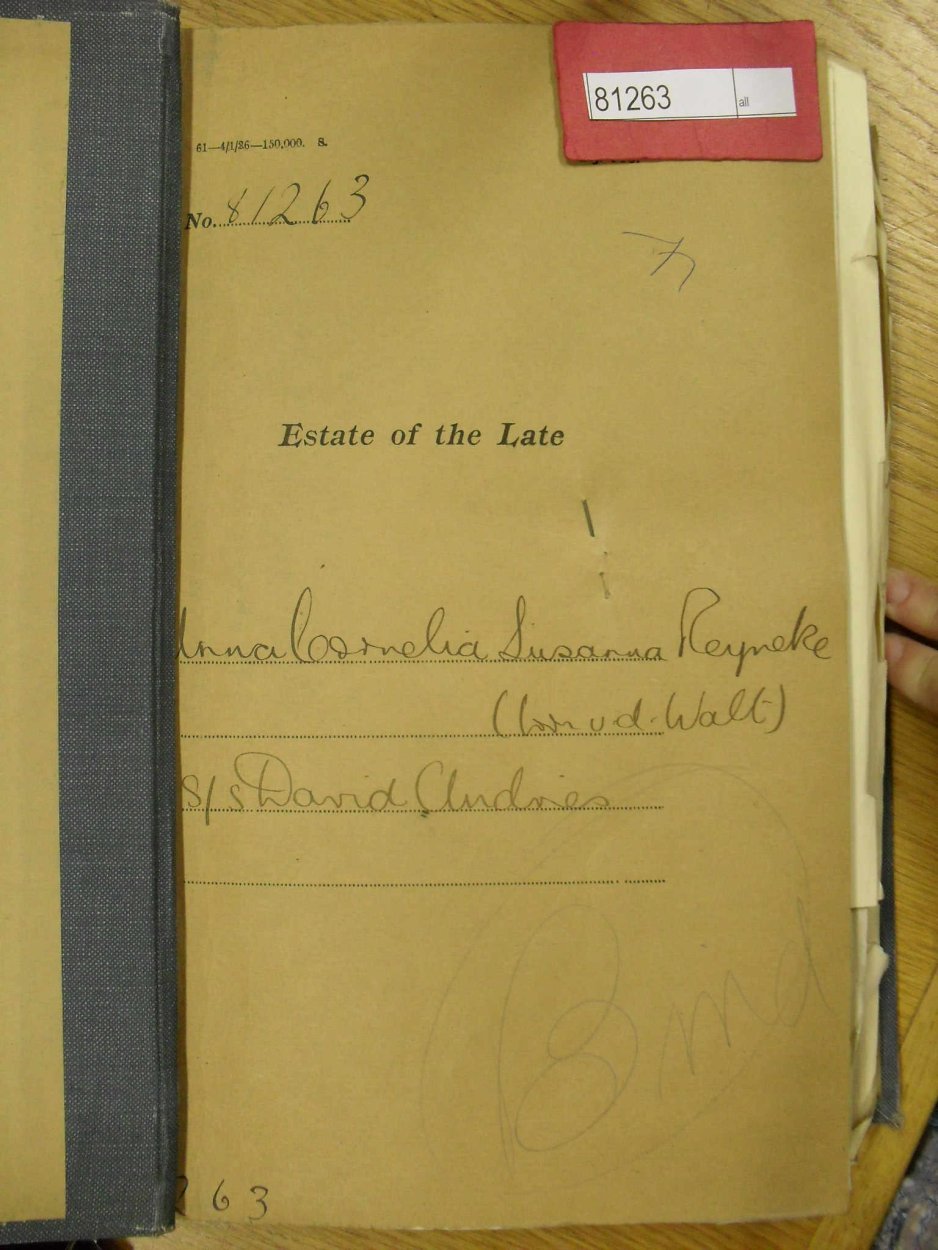 81263 all
61—4/1/26—150,000. S.
No. 81263
Estate of the Late
Anna Cornelia Susanna Reyneke
(born v.d. Walt)
s/s David Andries
Bind
263